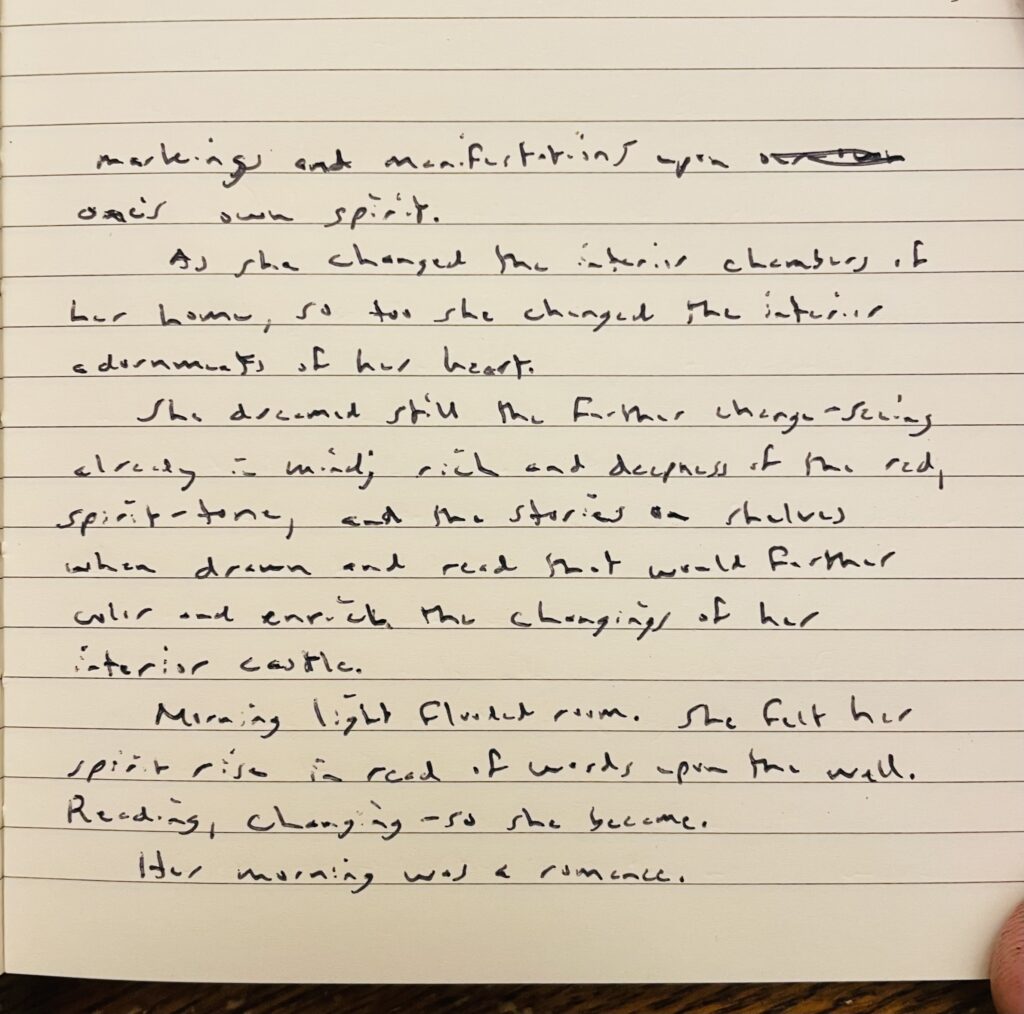 markings and manifestations upon
one's own spirit.
As she changed the interior chambers of
her home, so too she changed the interior
adornments of her heart.
She dreamed still the further change-seeing
already in mind; rich and deepness of the red,
spirit-tone, and the stories on shelves
when drawn and read that would further
color and enrich the changings of her
interior castle.
Morning light flooded room. She felt her
spirit rise in read of words upon the wall.
Reading, changing-so she became.
Her morning was a romance.